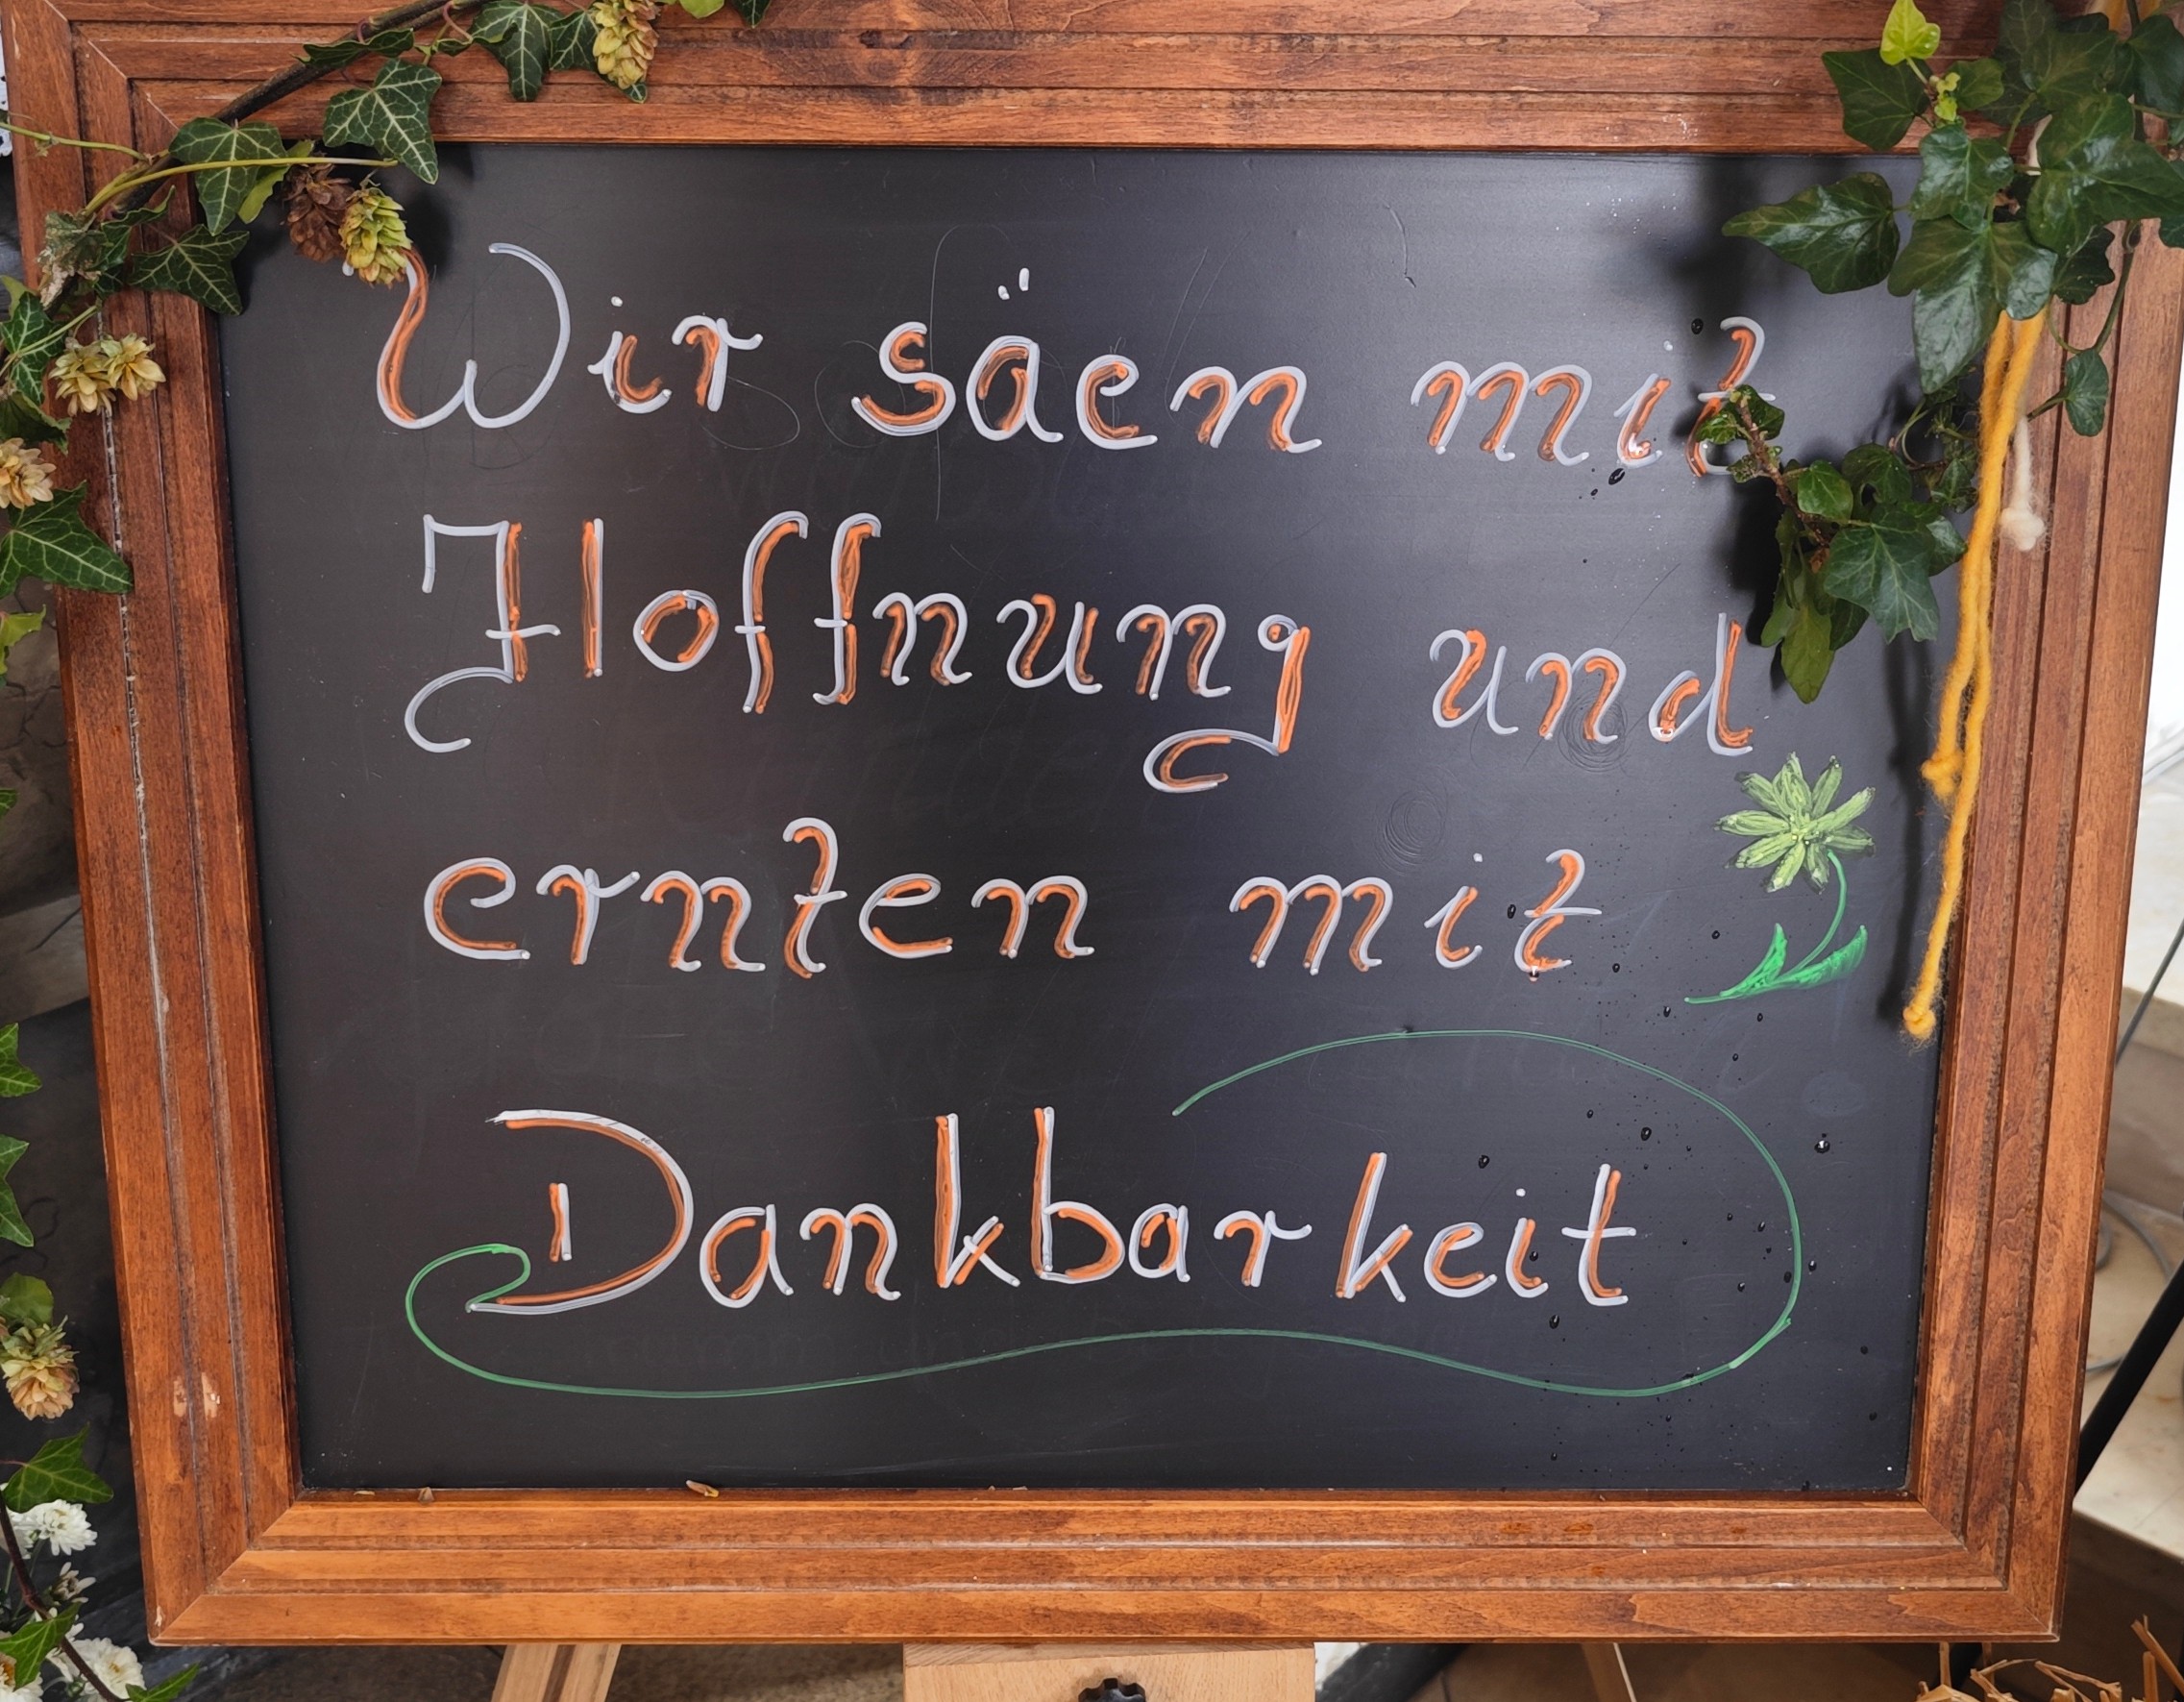 Wir säen mit
Hoffnung und
ernten mit
Dankbarkeit